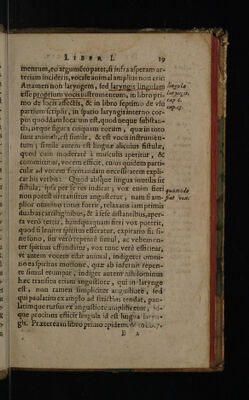 LIBER I. 19
mentum, eo argumēto patet, si infra asperam ar-
teriam incideris, vocale animal amplius non erit:
Attamen non laryngem, sed laryngis lingulam
esse proprium vocis instrumentum, in libro pri-
mo de locis affectis, & in libro septimo de vsu
partium scripsit, in spatio laryngis interno cor-
pus quoddam locatum est, quod neque substan-
tia, neque figura cuiquam eorum, quæ in toto
sunt animali, est simile, & est vocis instrumen-
tum; simile autem est lingulæ alicuius fistulæ,
quod cum moderatè à musculis aperitur, &
comminuitur, vocem efficit, cuius quidem partic-
ulæ ad vocem formandam necessitatem expli-
cat his verbis: Quod absque lingua inutilis sit
fistula, ipsa per se res indicat; vox enim fieri
non potest nisi transitus angustetur, nam si am-
plior omnino totus foret, relaxatis iam primis
duabus cartilaginibus, & à sese distantibus, aper-
ta verò tertia, nunquam quam fieri vox poterit,
quod si leniter spiritus efferatur, expiratio fit si-
ne sono, sin verò repentè simul, ac vehemen-
ter spiritus effunditur, vox tunc verè efficitur;
vt autem vocem edat animal, indiget omni-
no ea spiritus motione, quæ ab infernis repen-
te simul erumpat, indiget autem nihilominus
hac transitu etiam angustiore, qui in larynge
est, non tamen simpliciter angustiore, sed
qui paulatim ex amplo ad strictius tendat, pau-
latimque rursus ex angustiore amplificetur, id-
que protinus efficit lingula id est lingua laryn-
gis. Præterea in libro primo epidem. &
lingula
laryngis.
cap. 6.
cap. 13.
quomodo
fiat vox